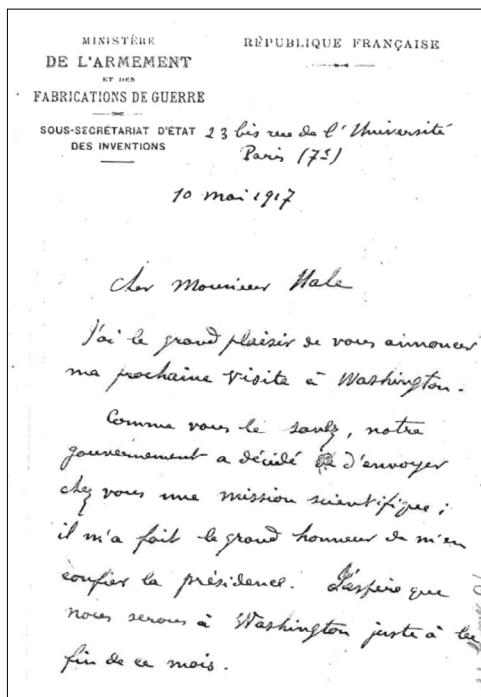 MINISTÈRE
DE L'ARMEMENT
ET DES
FABRICATIONS DE GUERRE
SOUS-SECRÉTARIAT D'ÉTAT
DES INVENTIONS
RÉPUBLIQUE FRANÇAISE
23 bis rue de l'Université
Paris (7e)
10 mai 1917
Cher Monsieur Hale
J'ai le grand plaisir de vous annoncer
ma prochaine visite à Washington.
Comme vous le savez, notre
gouvernement a décidé d'envoyer
chez vous une mission scientifique ;
il m'a fait le grand honneur de m'en
confier la présidence. J'espère que
nous serons à Washington juste à la
fin de ce mois.